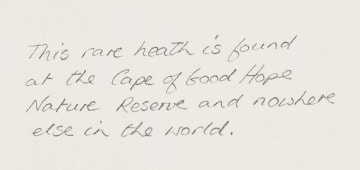 This rare heath is found
at the Cape of Good Hope
Nature Reserve and nowhere
else in the world.